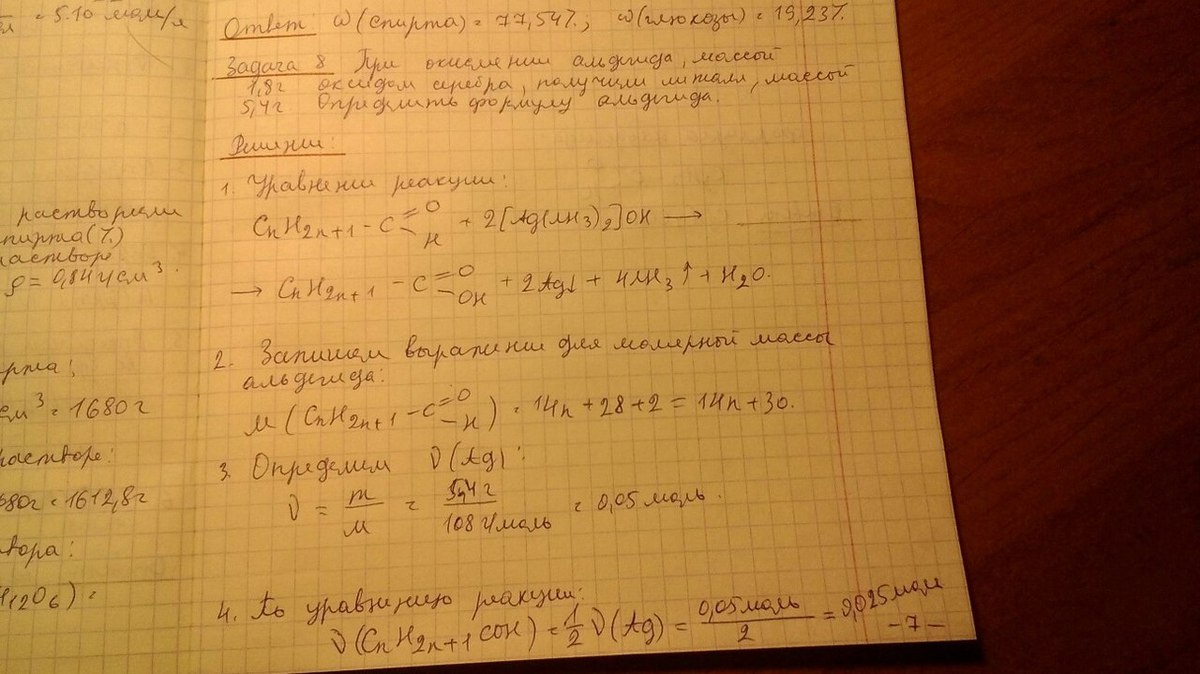 = 5.10 моль/л
растворили
спирта (%)
растворе
ρ = 0,84 г/см³.
спирта;
см³ = 1680 г
растворе:
680г = 1612,8г
H12O6) =
Ответ: ω(спирта) = 77,54%; ω(глюкозы) = 19,23%.
Задача 8 При окислении альдегида, массой
1,8г оксидом серебра, получили металл, массой
5,4г Определить формулу альдегида.
Решение:
1. Уравнение реакции:
CnH2n+1 - C =O - H + 2[Ag(NH3)2]OH →
→ CnH2n+1 - C =O - OH + 2Ag↓ + 4NH3↑ + H2O.
2. Запишем выражение для молярной массы
альдегида:
M (CnH2n+1 - C =O - H) = 14n + 28 + 2 = 14n + 30.
3. Определим ν(Ag):
ν = m/M = 5,4г/108г/моль = 0,05 моль.
4. По уравнению реакции:
ν(CnH2n+1 COH) = 1/2 ν(Ag) = 0,05моль/2 = 0,025моль
-7-